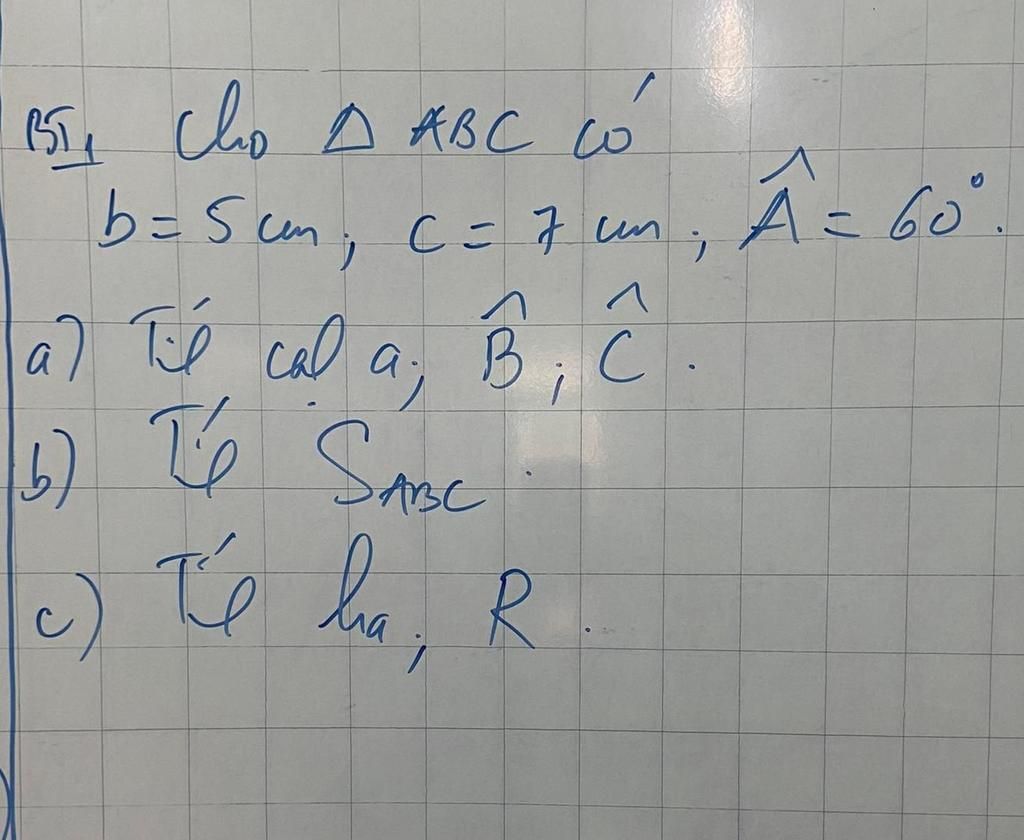 BT1 Cho Δ ABC có
b = 5 cm; c = 7 cm; Â = 60°.
a) Tí cạ a; B̂; Ĉ.
b) Tí S_ABC.
c) Tí ha; R.